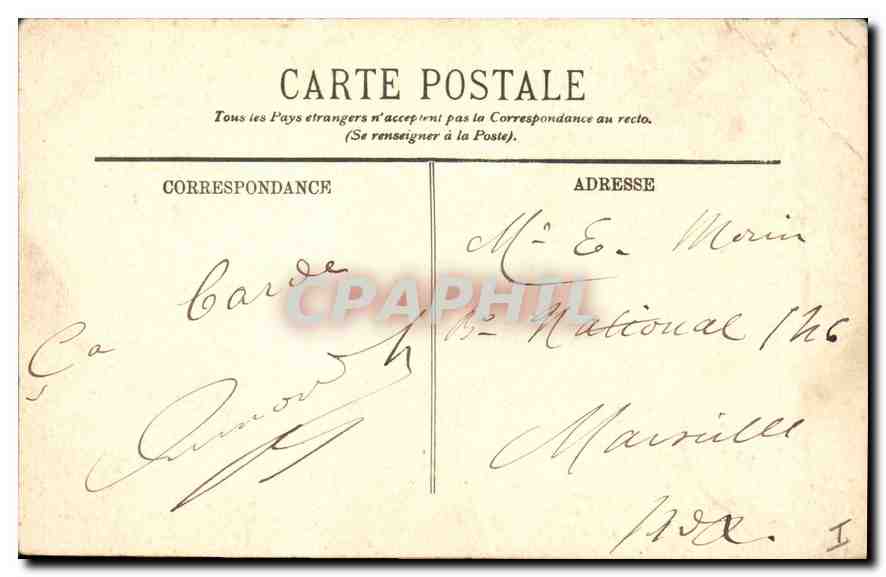 CARTE POSTALE
Tous les Pays etrangers n'acceptent pas la Correspondance au recto.
(Se renseigner à la Poste).
CORRESPONDANCE
ADRESSE
Mr E. Morin
Bd National 146
Marseille
Ça Carde
CPAPHIL
I